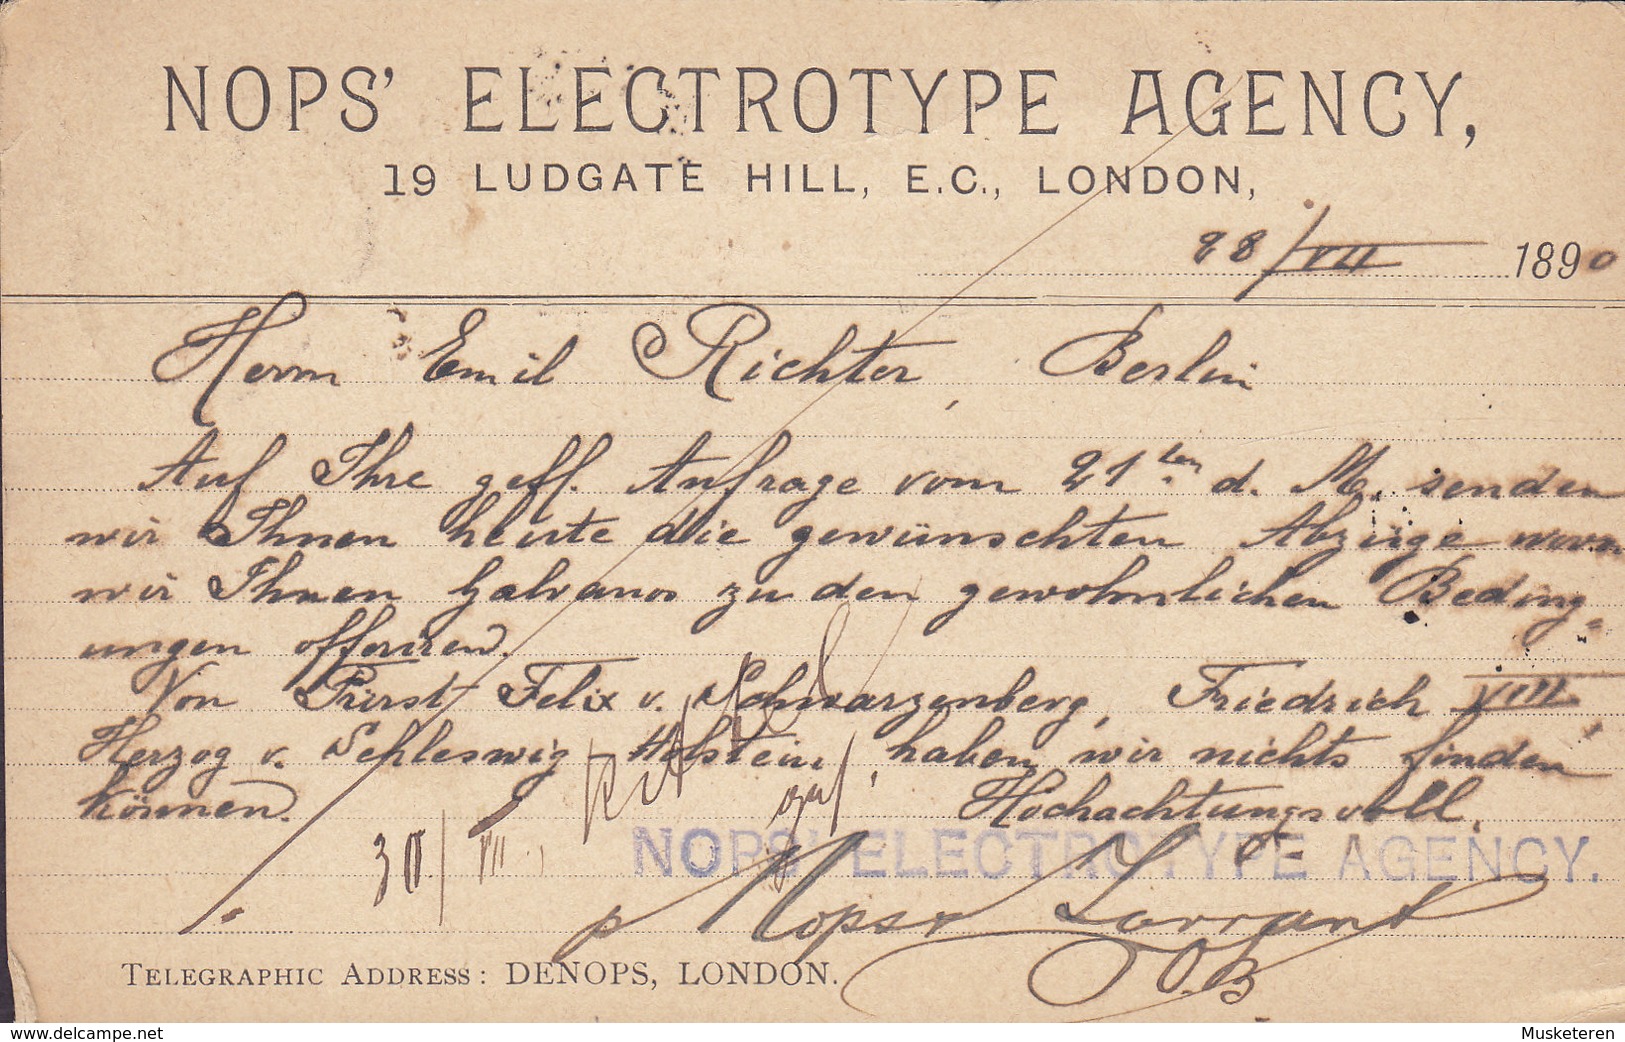 NOPS' ELECTROTYPE AGENCY,
19 LUDGATE HILL, E.C., LONDON,
28/VII 1890
Herrn Emil Richter, Berlin
Auf Ihre geff. Anfrage vom 21ten d. M. senden
wir Ihnen heute die gewünschten Abzüge wovon
wir Ihnen Galvanos zu den gewohnlichen Beding=
ungen offeriren.
Von Fürst Felix v. Schwarzenberg, Friedrich VIII
Herzog v. Schleswig Holstein, haben wir nichts finden
können. Hochachtungsvoll.
30/VII
NOPS' ELECTROTYPE AGENCY.
p Nops Tarrant
O.B
TELEGRAPHIC ADDRESS: DENOPS, LONDON.
www.delcampe.net
Musketeren